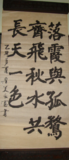 落霞與孤鶩
齊飛秋水共
長天一色